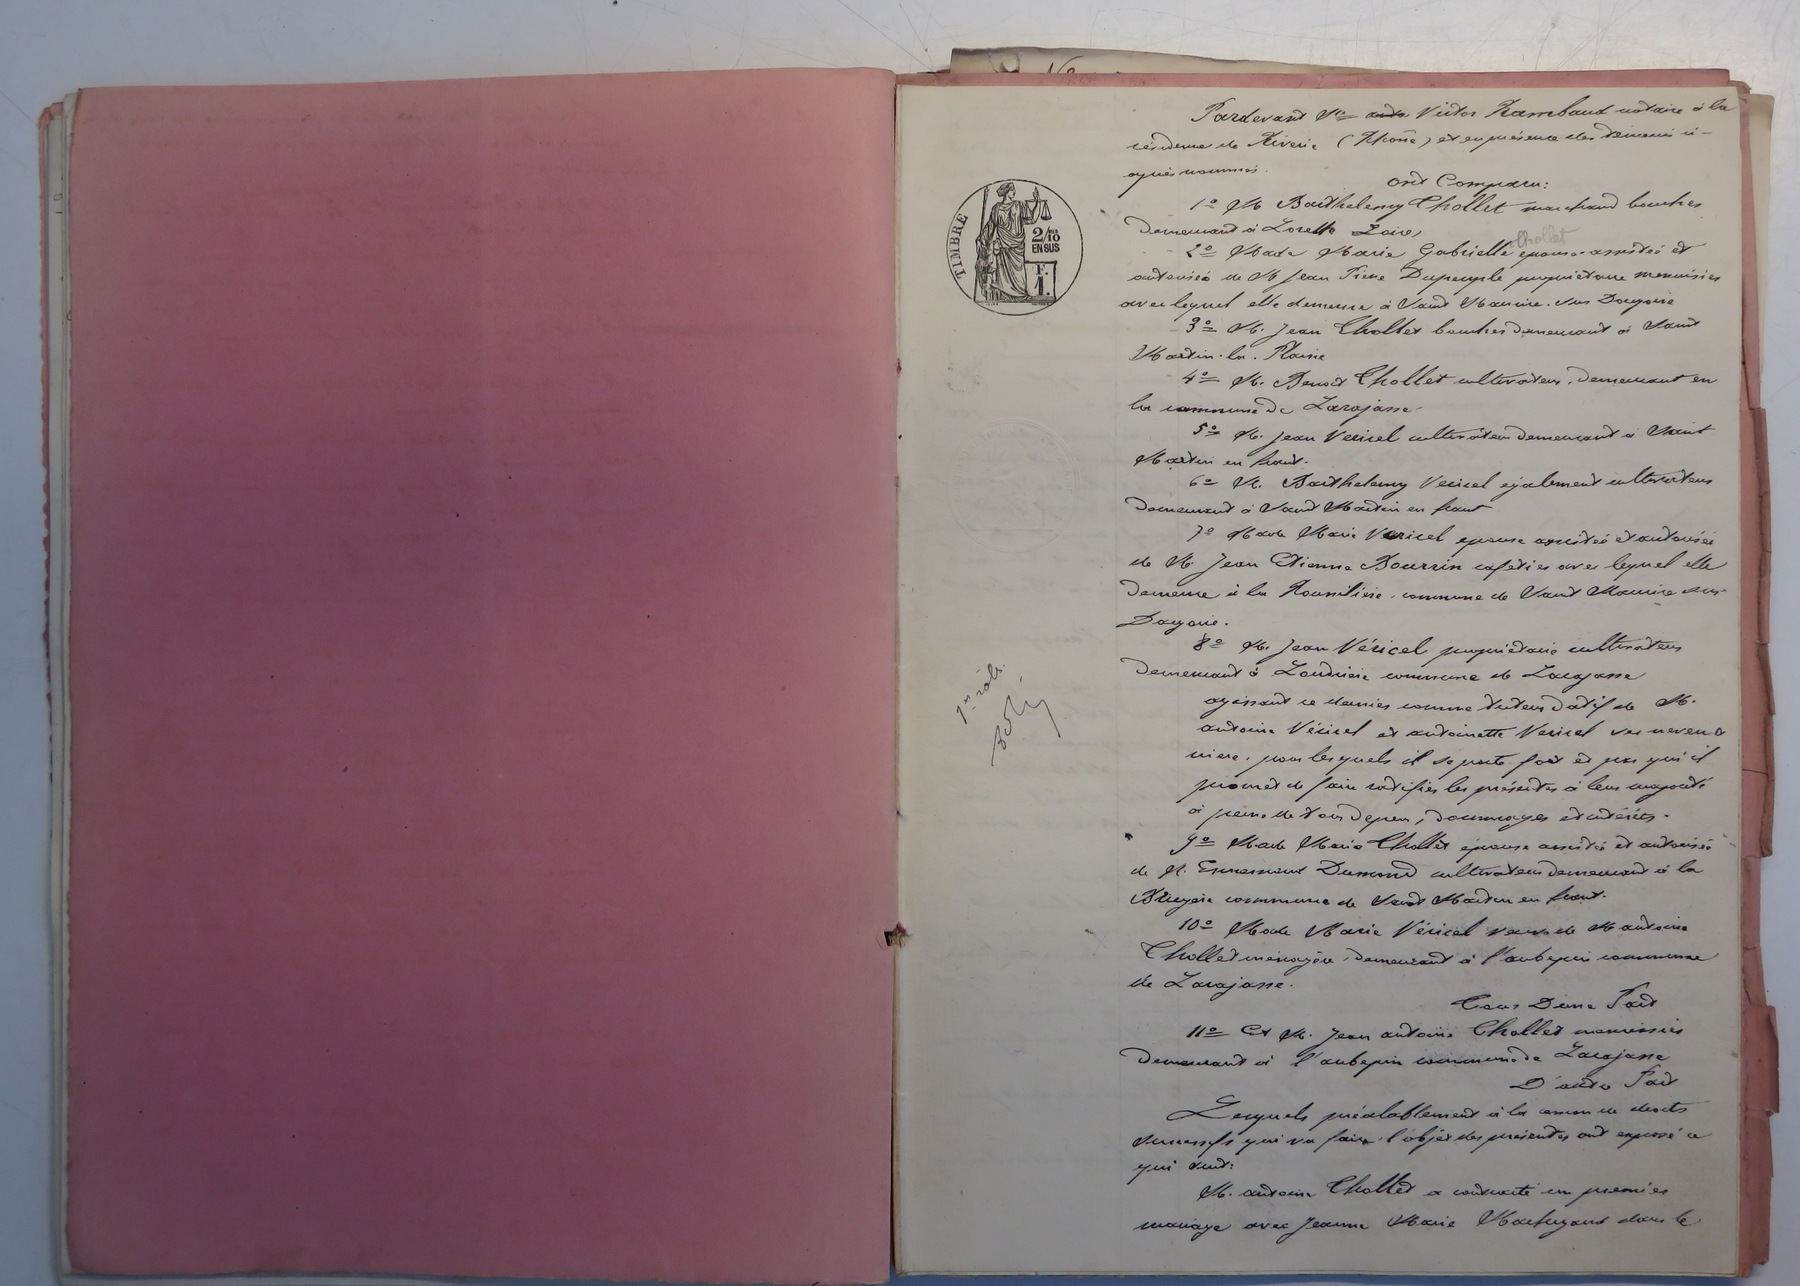 Pardevant Me Victor Rambaud notaire à la
résidence de Riverie (Rhône) et en présence des témoins ci-
après nommés.
ont Comparu:
1o M Barthelemy Chollet marchand boucher
demeurant à Lorette Loire,
Chollet
2o Made Marie Gabrielle epouse assistée et
autorisée de M Jean Pierre Dupeuple propriétaire menuisier
avec lequel elle demeure à Saint Maurice sur Dargoire
3o M. Jean Chollet boucher demeurant à Saint
Martin-la-Plaine
4o M. Benoit Chollet cultivateur, demeurant en
la commune de Larajasse
5o M. Jean Vericel cultivateur demeurant à Saint
Martin en haut.
6o M. Barthelemy Vericel également cultivateur
demeurant à Saint Martin en haut
7o Made Marie Vericel epouse assistée et autorisée
de M. Jean Etienne Bourrin cafetier avec lequel elle
demeure à la commune de Saint Maurice sur
Dargoire.
8o M. Jean Véricel propriétaire cultivateur
demeurant à commune de Larajasse
agissant ce dernier comme tuteur datif de M.
antoine Véricel et antoinette Vericel ses neveu &
niece, pour lesquels il se porte fort et par qui il
promet de faire ratifier les présentes à leur majorité
à peine de tous depens, dommages et intérêts.
9o Made Marie Chollet épouse assistée et autorisée
de M. Ennemond Dumond cultivateur demeurant à la
Bruyère commune de Saint Martin en haut.
10o Made Marie Véricel veuve de M antoine
Chollet ménagère, demeurant à l'aubepin commune
de Larajasse.
Tous D'une Part
11o Et M. Jean antoine Chollet menuisier
demeurant à l'aubepin commune de Larajasse
D'autre Part
Lesquels préalablement à la cession de droits
successifs qui va faire l'objet des présentes ont exposé ce
qui suit:
M. antoine Chollet a contracté un premier
mariage avec Jeanne Marie dans le
TIMBRE
2/10
EN SUS
F.
1.
1er rôle